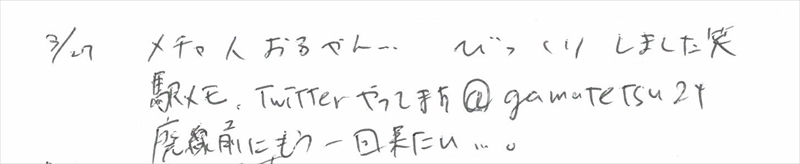 3/27 メチャ人おるやん… びっくりしました笑
駅メモ、Twitterやってます@gamatetsu24
廃線前にもう一回来たい…。